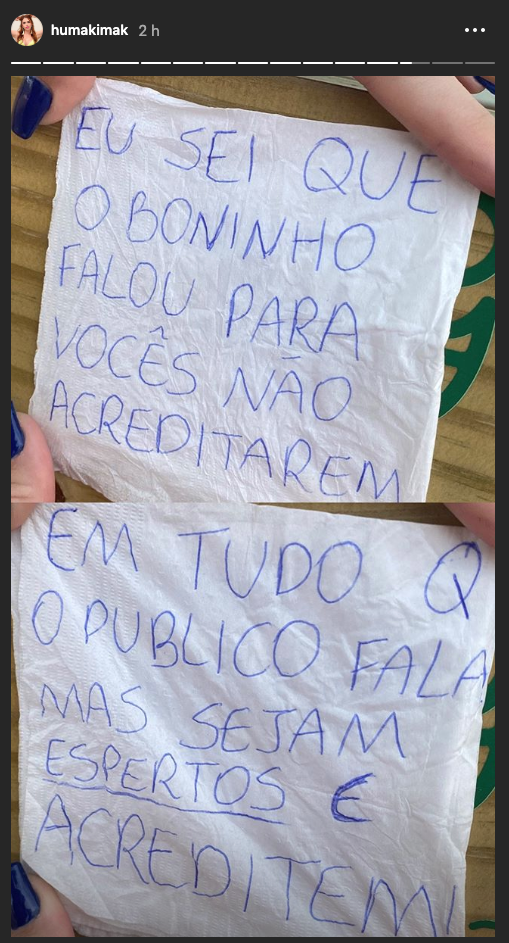 humakimak 2 h
EU SEI QUE
O BONINHO
FALOU PARA
VOCÊS NÃO
ACREDITAREM
EM TUDO Q
O PUBLICO FALA
MAS SEJAM
ESPERTOS E
ACREDITEM!